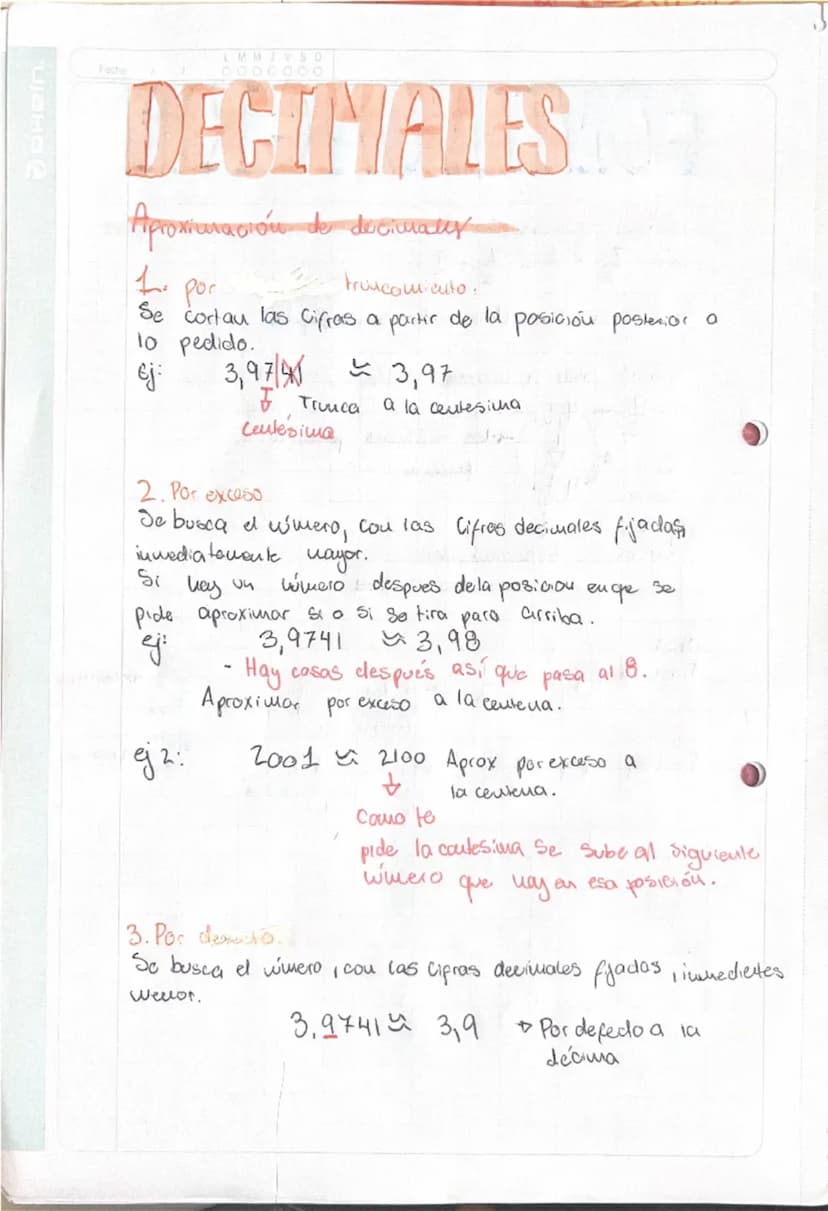 Fecha
L M M J V S D
DECIMALES
Aproximación de decimales
1. por truncamiento.
Se cortan las cifras a partir de la posición posterior a
lo pedido.
Ej: 3,97|41 ≈ 3,97
↓ Trunca a la centesima
Centésima
2. Por exceso
Se busca el número, con las cifras decimales fijadas,
inmediatamente mayor.
Si hay un número despues de la posicion en qe se
pide aproximar si o si se tira para arriba.
ej: 3,9741 ≈ 3,98
- Hay cosas después así que pasa al 8.
Aproximar por exceso a la centena.
ej 2: 2001 ≈ 2100 Aprox por exceso a
↓ la centena.
Como te
pide la centesima se sube al siguiente
número que hay en esa posición.
3. Por defecto.
Se busca el número, con las cifras decimales fijadas,
menor.
3,9741 ≈ 3,9 → Por defecto a la
décima